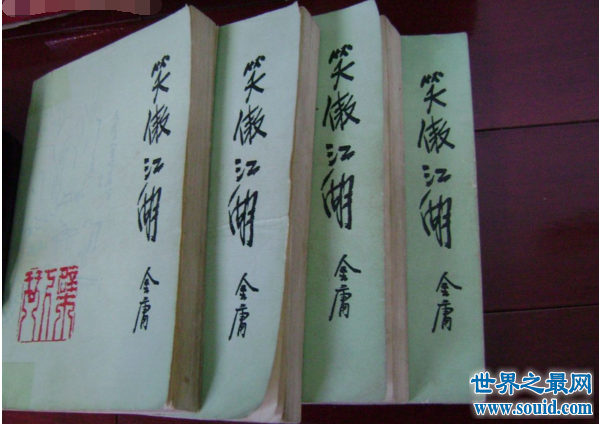 笑傲江湖
金庸
笑傲江湖
金庸
笑傲江湖
金庸
笑傲江湖
金庸
世界之最网
www.souid.com